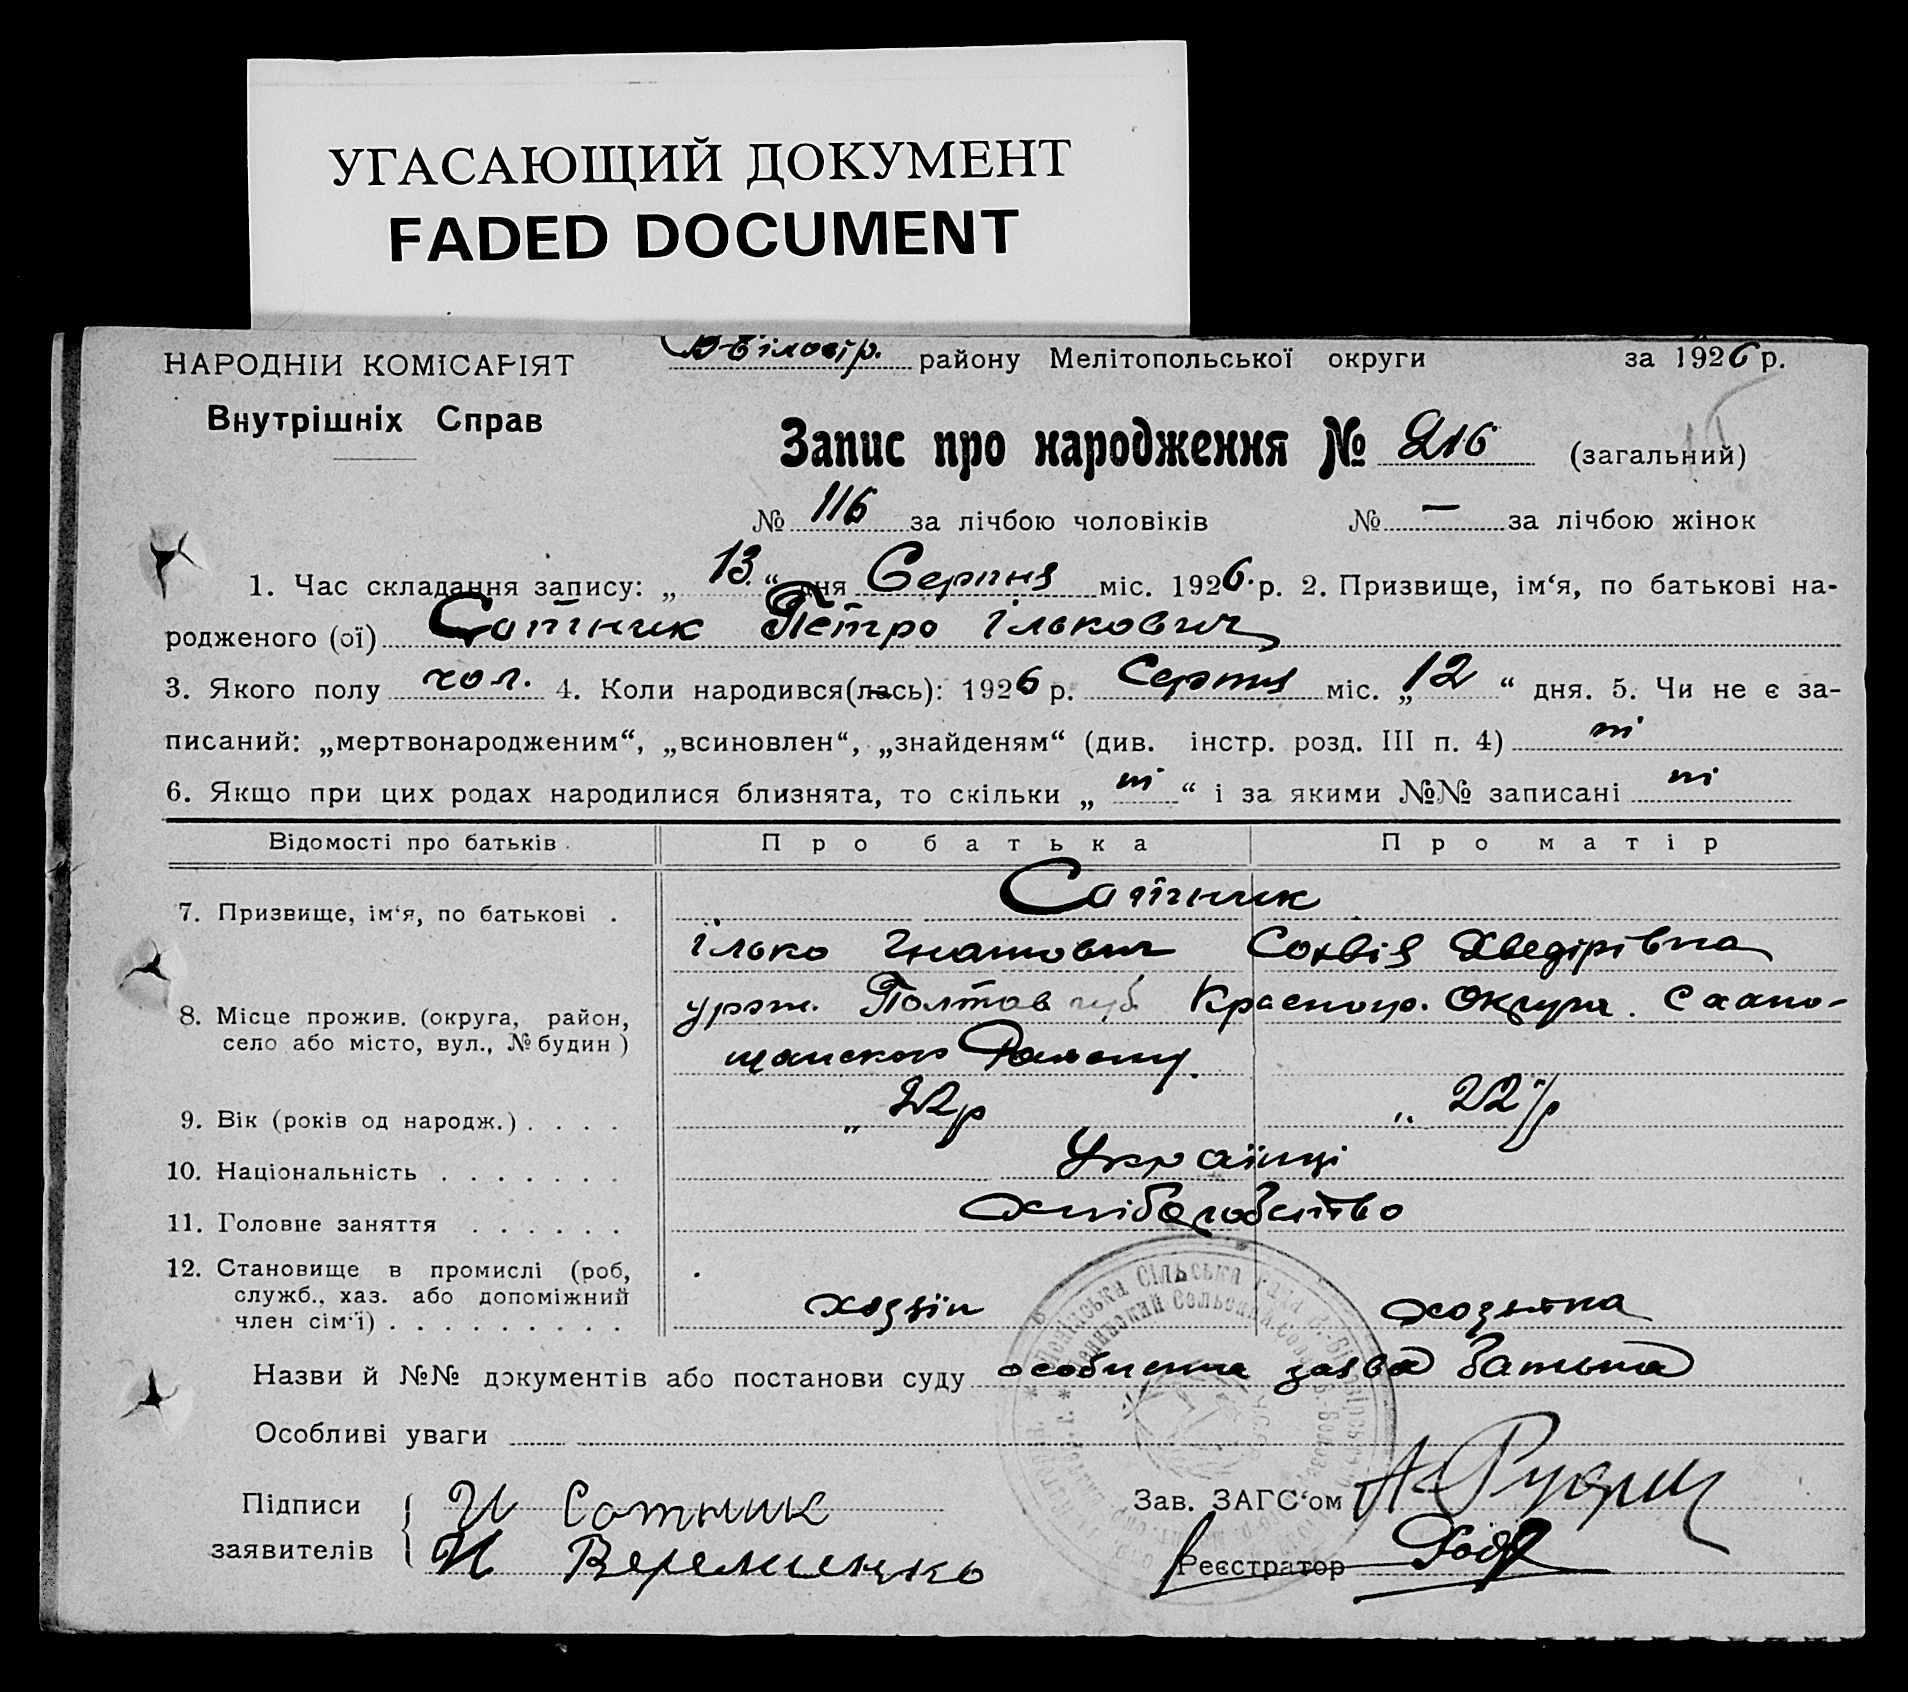 УГАСАЮЩИЙ ДОКУМЕНТ
FADED DOCUMENT
НАРОДНІЙ КОМІСАРІЯТ
Внутрішніх Справ
В-Білозір. району Мелітопольської округи за 1926 р.
Запис про народження № 216 (загальний)
№ 116 за лічбою чоловіків № — за лічбою жінок
1. Час складання запису: „ 13 “ дня Серпня міс. 1926 р. 2. Призвище, ім‘я, по батькові на-
родженого (ої) Сотник Петро Ількович
3. Якого полу чол. 4. Коли народився(лась): 1926 р. Серпня міс. „ 12 “ дня. 5. Чи не є за-
писаний: „мертвонародженим“, „всиновлен“, „знайденям“ (див. інстр. розд. III п. 4) ні
6. Якщо при цих родах народилися близнята, то скільки „ ні “ і за якими №№ записані ні
Відомості про батьків Про батька Про матір
7. Призвище, ім‘я, по батькові . Сотник
Ілько Гнатович Сохвія Хведірівна
8. Місце прожив. (округа, район, село або місто, вул., № будин) урож. Полтав губ. Красногр. Округи.
9. Вік (років од народж.) . . . . „ 22 р „ 22 р
10. Національність . . . . . . . Українці
11. Головне заняття . . . . . . Хліборобство
12. Становище в промислі (роб,
служб., хаз. або допоміжний
член сім‘ї) . . . . . . . . . хозяїн хозяйка
Назви й №№ документів або постанови суду особиста заява батька
Особливі уваги
Підписи И Сотник Зав. ЗАГС‘ом
заявителів И Веремиенко Реєстратор